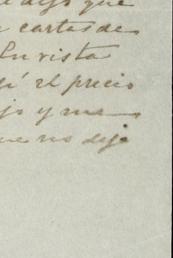 dijo que
cartas de
En vista
el precio
jo y me
que no dejo